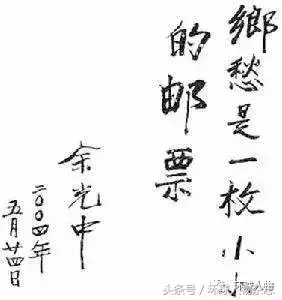 鄉愁是一枚小小
的邮票
余光中
二〇〇四年
五月廿四日
头条号 /